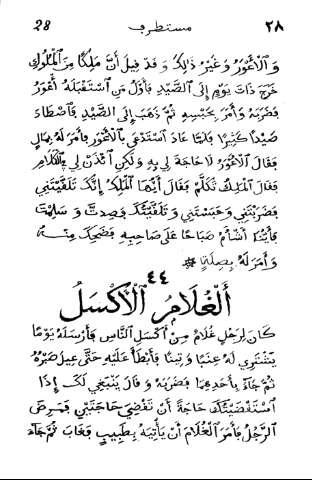 28 مستطرف ٢٨
وَالْأَعْوَرُ وَغَيْرُ ذَلِكَ وَقَدْ قِيلَ أَنَّ مَلِكًا مِنَ الْمُلُوكِ
خَرَجَ ذَاتَ يَوْمٍ إِلَى الصَّيْدِ بِأَوَّلُ مَنِ اسْتَقْبَلَهُ أَعْوَرُ
فَضَرَبَهُ وَأَمَرَ بِحَبْسِهِ ثُمَّ ذَهَبَ إِلَى الصَّيْدِ فَاصْطَادَ
صَيْدًا كَثِيرًا فَلَمَّا عَادَ اسْتَدْعَى بِالْأَعْوَرِ فَأَمَرَ لَهُ بِمَالٍ
فَقَالَ الْأَعْوَرُ لَا حَاجَةَ لِي بِهِ وَلَكِنِ ائْذَنْ لِي فِي الْكَلَامِ
فَقَالَ الْمَلِكُ تَكَلَّمْ فَقَالَ أَيُّهَا الْمَلِكُ إِنَّكَ تَلَقَّيْتَنِي
فَضَرَبْتَنِي وَحَبَسْتَنِي وَتَلَقَّيْتُكَ فَصِدْتَ وَسَلِمْتَ
فَأَيُّنَا أَشْأَمُ صَبَاحًا عَلَى صَاحِبِهِ فَضَحِكَ مِنْهُ
وَأَمَرَ لَهُ بِصِلَةٍ *
٤٤
أَلْغُلَامُ الْأَكْسَلُ
كَانَ لِرَجُلٍ غُلَامٌ مِنْ أَكْسَلِ النَّاسِ فَأَرْسَلَهُ يَوْمًا
يَشْتَرِي لَهُ عِنَبًا وَتِينًا فَأَبْطَأَ عَلَيْهِ حَتَّى عِيلَ صَبْرُهُ
ثُمَّ جَاءَ بِأَحَدِهِمَا فَضَرَبَهُ وَقَالَ يَنْبَغِي لَكَ إِذَا
اسْتَقْضَيْتُكَ حَاجَةً أَنْ تَقْضِيَ حَاجَتَيْنِ فَمَرِضَ
الرَّجُلُ فَأَمَرَ الْغُلَامَ أَنْ يَأْتِيَهُ بِطَبِيبٍ فَغَابَ ثُمَّ جَاءَ